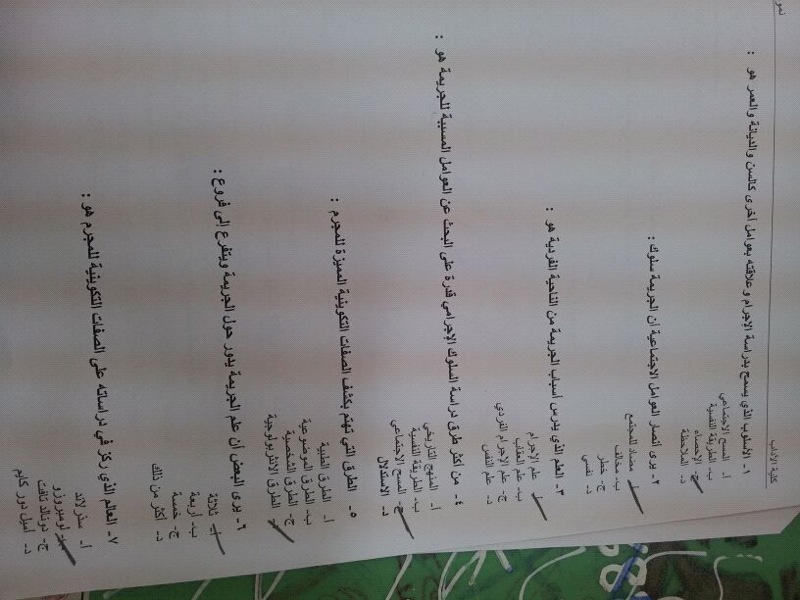 نمو
كلية الآداب
١- الأسلوب الذي يسمح بدراسة الإجرام وعلاقته بعوامل أخرى كالسن والديانة والعمر هو :
أ. المسح الاجتماعي
ب- الطريقة النفسية
ج- الإحصاء
د- الملاحظة
٢- يرى أنصار العوامل الاجتماعية أن الجريمة سلوك :
أ- مضاد للمجتمع
ب- مخالف
ج- خطر
د- نفسي
٣- العلم الذي يدرس أسباب الجريمة من الناحية الفردية هو :
أ- علم الإجرام
ب- علم العقاب
ج- علم الإجرام الفردي
د- علم النفس
٤- من أكثر طرق دراسة السلوك الإجرامي قدرة على البحث عن العوامل المسببة للجريمة هو :
أ- المنهج التاريخي
ب- الطريقة النفسية
ج- المسح الاجتماعي
د- الاستدلال
٥- الطرق التي تهتم بكشف الصفات التكوينية المميزة للمجرم :
أ- الطرق الطبية
ب- الطرق الموضوعية
ج- الطرق الشخصية
د- الطرق الأنثربولوجية
٦- يرى البعض أن علم الجريمة يدور حول الجريمة ويتفرع إلى فروع :
أ- ثلاثة
ب- أربعة
ج- خمسة
د- أكثر من ذلك
٧- العالم الذي ركز في دراسته على الصفات التكوينية للمجرم هو :
أ- سذرلاند
ب- لومبروزو
ج- دونالد تافت
د- أميل دور كايم